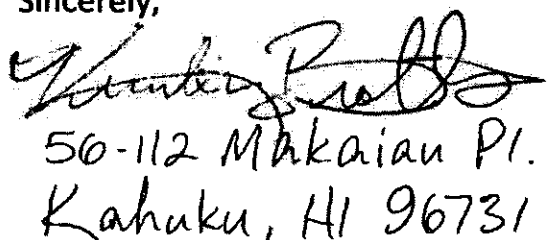 Sincerely,
56-112 Makaiau Pl.
Kahuku, HI 96731